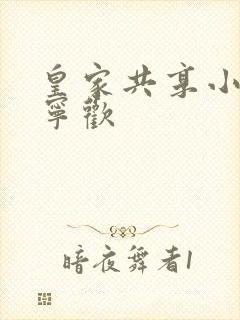 皇家共享小
寧歡
暗夜舞者1